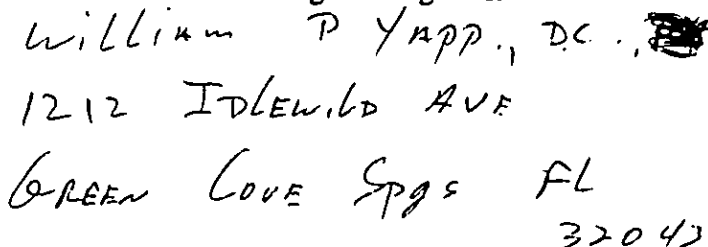 William P YAPP., D.C.,
1212 IDLEWILD AVE
GREEN COVE Spgs FL
32043